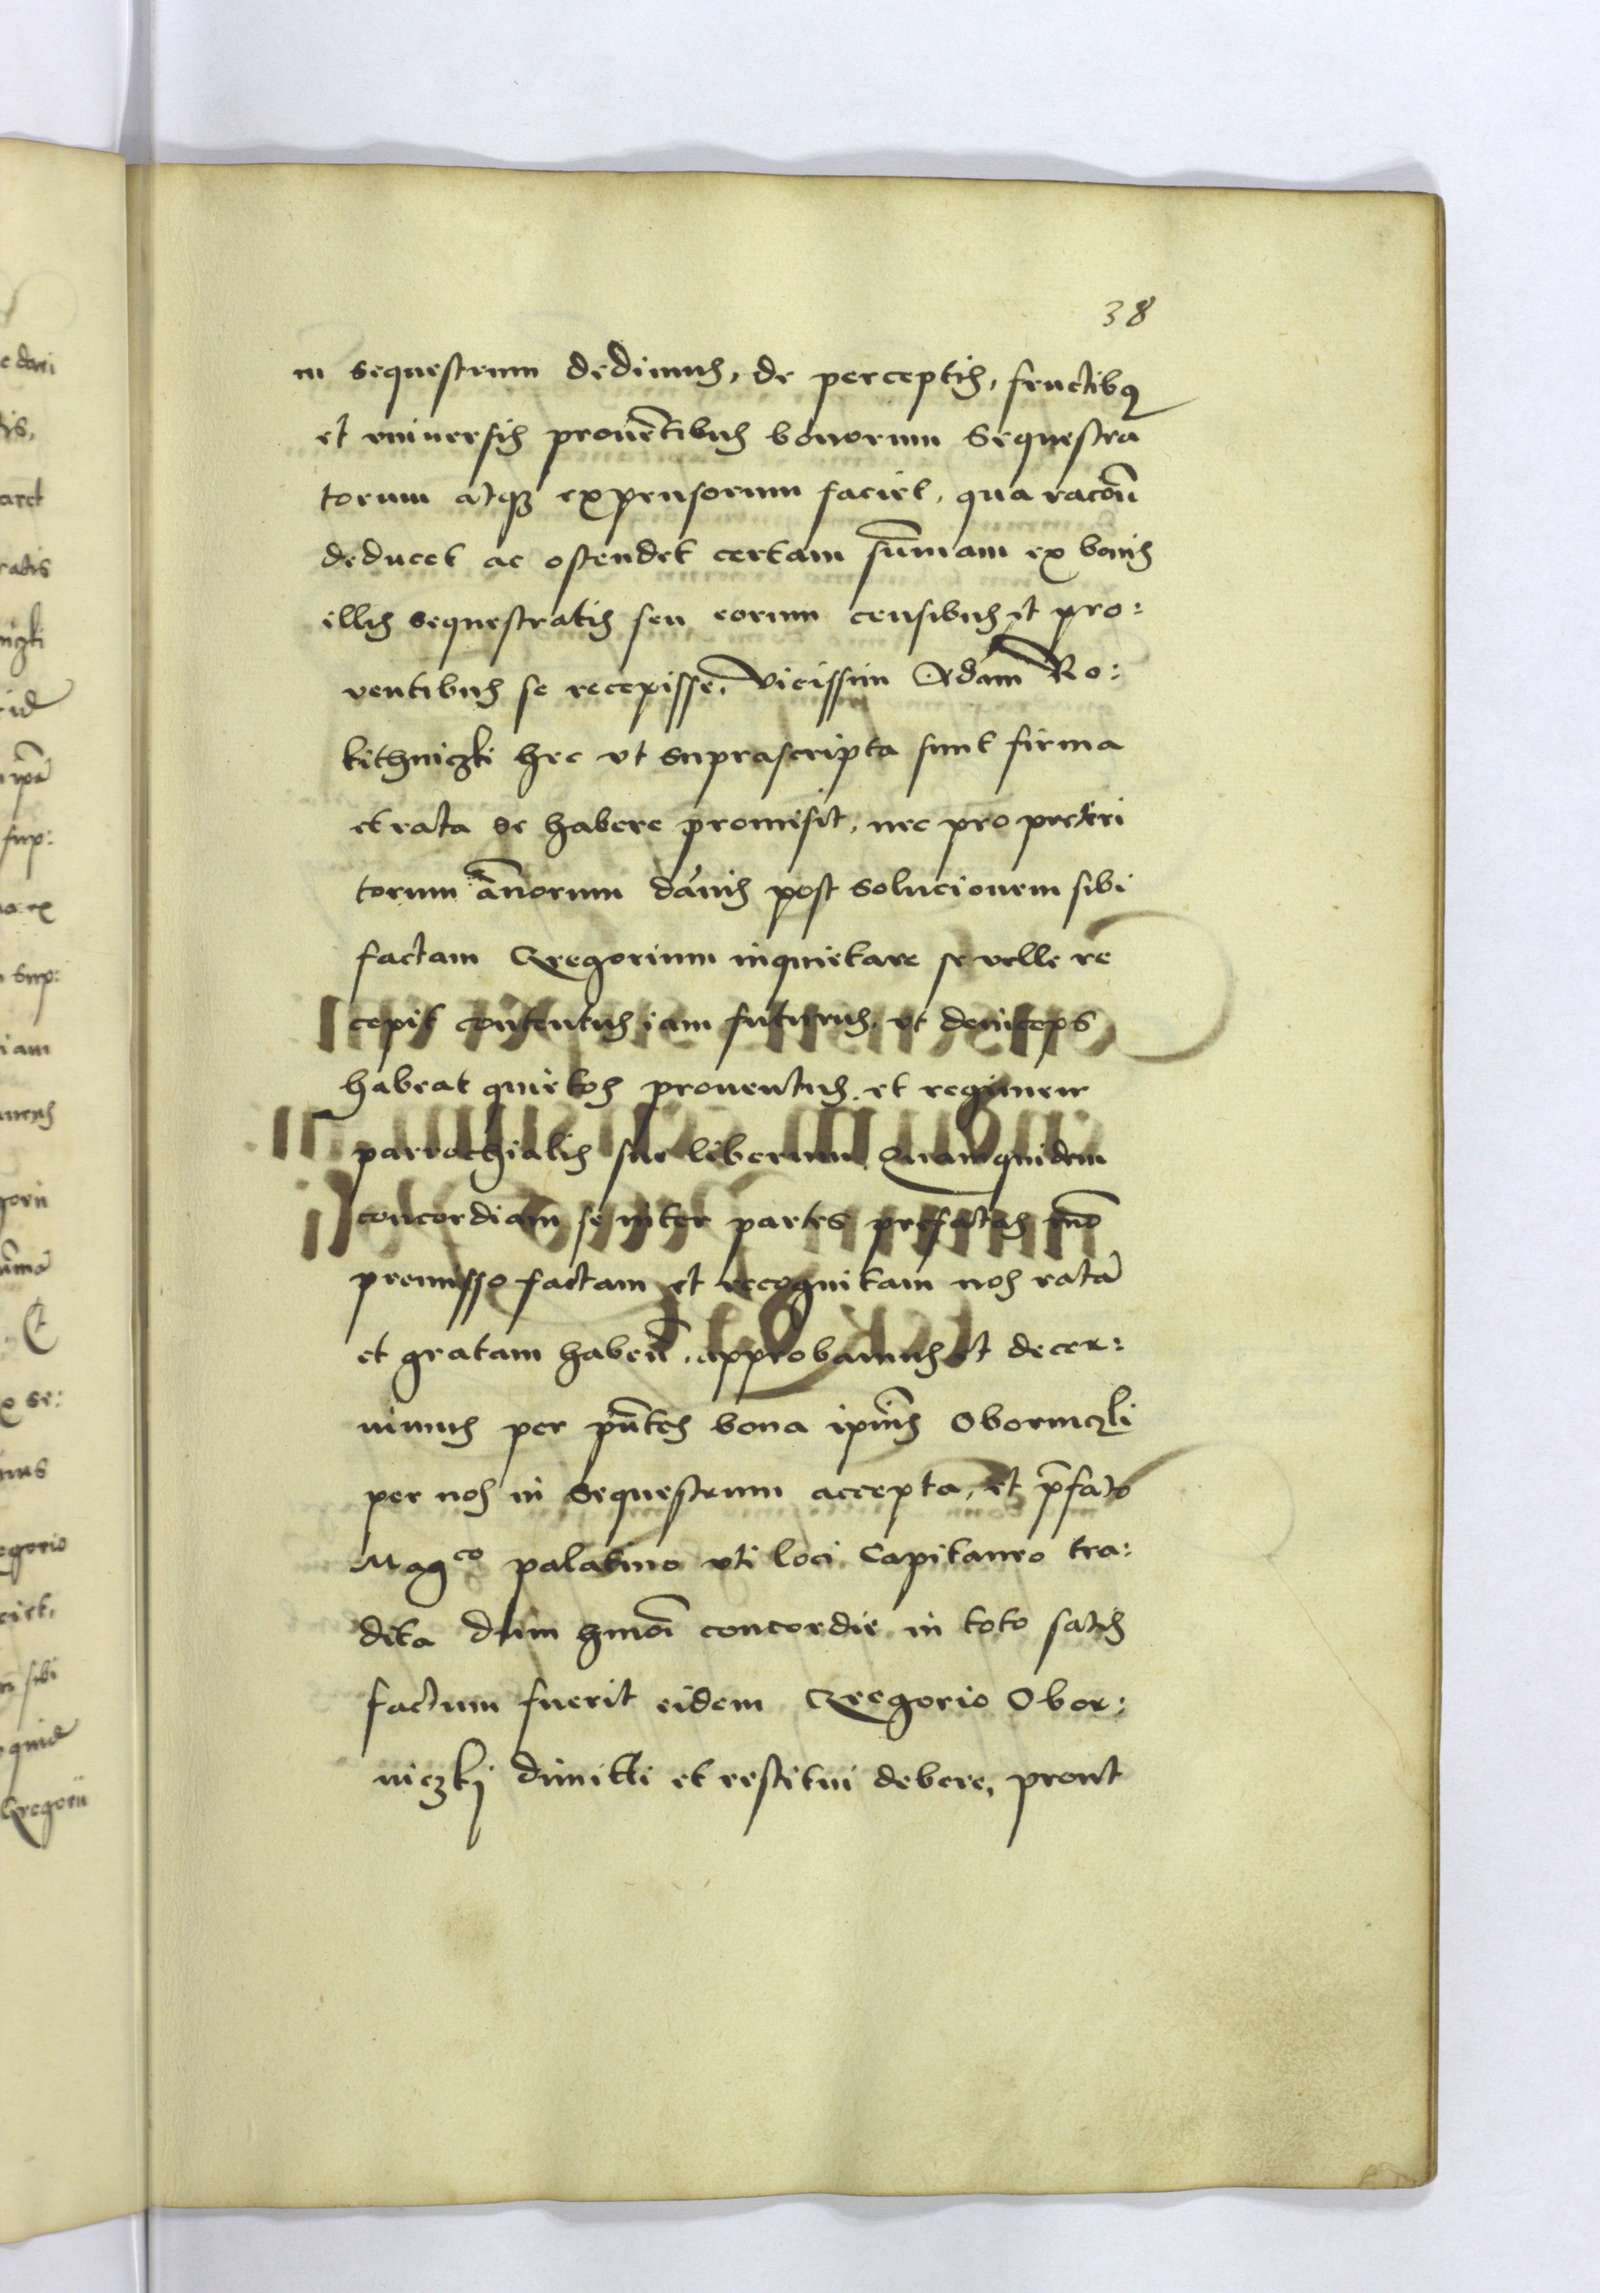 38
in sequestrum dedimus, de perceptis, fructibus
et universis proventibus bonorum Sequestra
torum atque expensorum faciet, qua racōn
deducet ac ostendet certam sūmam ex bonis
illis sequestratis seu eorum censibus et pro:
ventibus se recepisse, Vicissim Adam Ro:
kithniczki hec ut suprascripta sunt firma
et rata se habere promisit, nec pro preteri
torum annorum damnis post solucionem sibi
factam Gregorium inquietare se velle re
cepit contentus iam futurus, ut deinceps
habeat quietos proventus et regimen
parrochialis sue liberum Quamquidem
concordiam se inter partes prefatas mō
premisso factam et recognitam nos ratā
et gratam habeñ. approbamus et decer:
nimus per pñtes bona ipīus Oborniczki
per nos in Sequestrum accepta, et p̄fato
Mag^co palatino uti loci Capitaneo tra:
dita dum hmōi concordie in toto satis
factum fuerit eidem Gregorio Obor:
niczki dimitti et restitui debere, prout